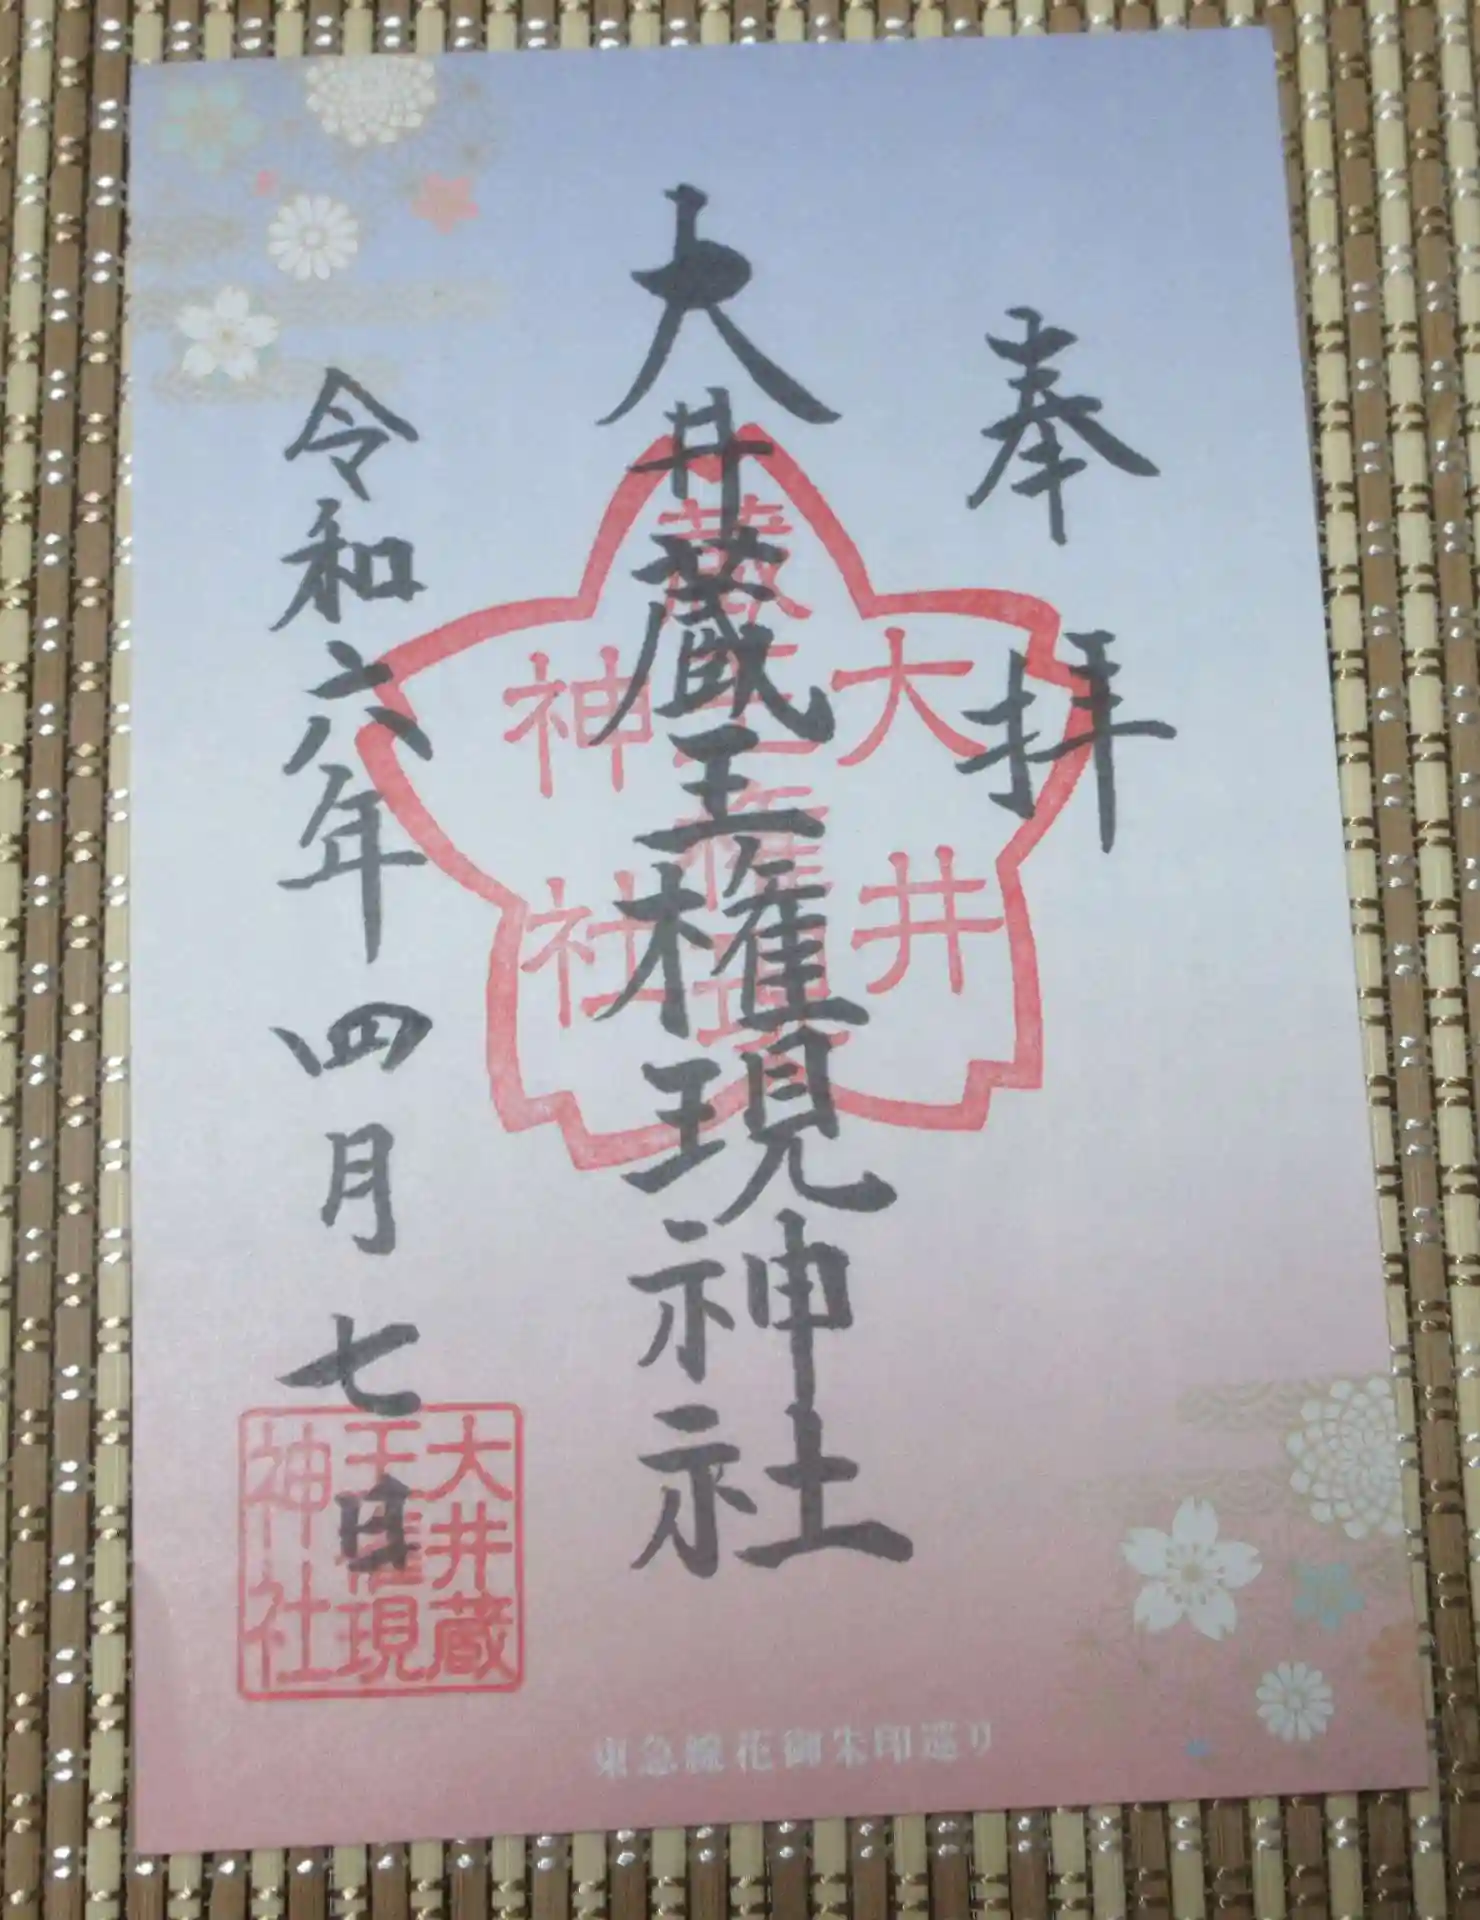 奉拝
大井蔵王権現神社
令和六年四月七日
大井
蔵王権現
神社
大井蔵
王権現
神社
東急線花御朱印巡り